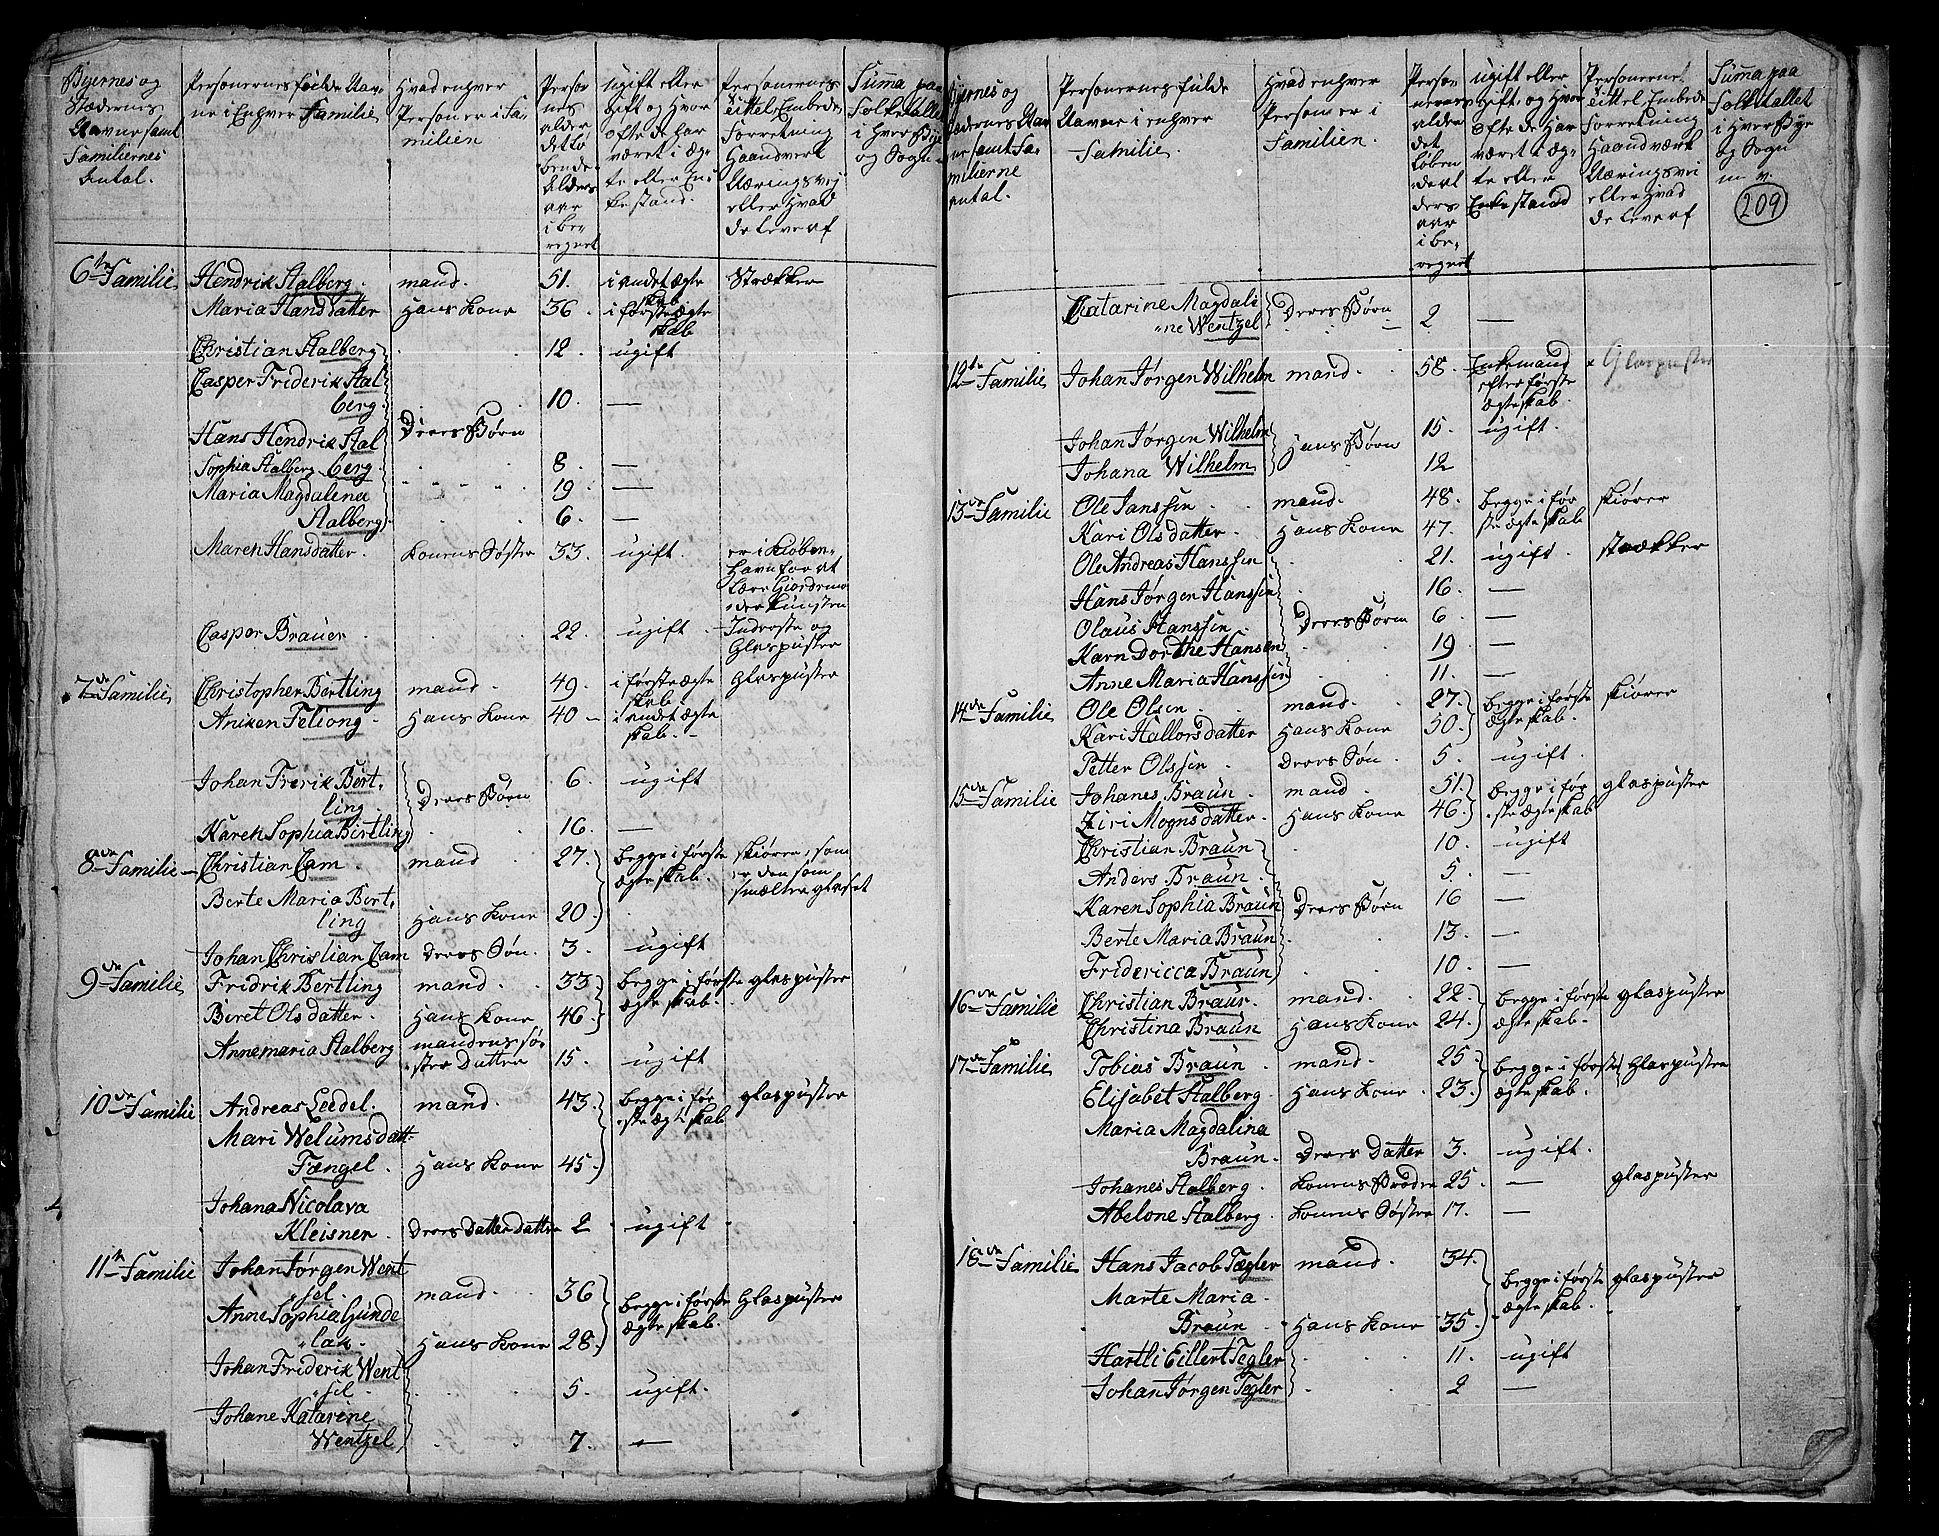 Byernes og Stædernes Navne samt Familiernes Antal.
Personernes fulde Navne i Enhver Familie
Hvad enhver Person er i Familien
Personens alder det løbende Alders aar iberegnet
ugift eller gift og Hvor ofte de har været i ægte eller Enkestand.
Personernes Tittel Embede Forretning Haandverk Næringsvej eller Hvad de leve af
Summa paa Folketallet i Hver Bye og Sogn
6te Familie Hendrik Stalberg. mand. 51. i andet ægteskab Strækker
Maria Hansdatter Hans Kone 36. i første ægteskab
Christian Stalberg 12. ugift
Casper Friderik Stalberg. 10. —
Hans Hendrik Stalberg. Deres Børn 8. —
Sophia Stalberg 19 —
Maria Magdalena Stalberg 6. —
Maren Hansdatter. Konens Søster 33. ugift. er i Kiøbenhavn for at lære Giordemoder Kunsten
Casper Brauer 22. ugift Inderste og Glaspuster
7de Familie Christopher Bertling mand. 49. i første ægteskab Glaspuster
Aniken Felsong. Hans Kone 40 — i andet ægteskab. —
Johan Frerik Bertling 6. ugift
Deres Børn
Karen Sophia Bertling 16. —
8de Familie — Christian Cam. mand 27. begge i første ægteskab. skiører, som er den som smælter glaset
Berte Maria Bertling Hans Kone 20.
Johan Christian Cam Deres Søn. 3. ugift
9de Familie Fridrik Bertling mand. 33 begge i første ægteskab. glaspuster
Beret Olsdatter. Hans Kone 46.
Annemaria Stalberg mandens søster Datter 15. ugift
10de Familie Andreas Leedel. mand. 43. begge i første ægteskab glaspuster
Mari Welumsdatt. Fængel. Hans Kone 45.
Johana Nicolava Kleisner. Deres Datter datter 2 ugift
11te Familie Johan Jørgen Wentsel. mand. 36 begge i første ægteskab. Glaspuster
Anne Sophia Gundelak. Hans Kone 28.
Johan Friderik Wentsel. 5. ugift.
Johane Katarine Wentzel 7. —
Byernes og Stædernes Navne samt Familierne antal.
Personernes fulde Navne i enhver Familie.
Hvad enhver Person er i Familien.
Personernes alder det løbende alders aar iberegnet
ugift eller gift og Hvor ofte de har været i ægte eller Enkestand
Personernes Tittel Embede Forretning Haandværk Næringsvei eller Hvad de leve af
Summa paa Folketallet i Hver Bye og Sogn m. v.
209
Catarine Magdaline Wentzel Deres Børn 2 —
12te Familie Johan Jørgen Wilhelm mand. 58. Enkemand efter første ægteskab. Glaspuster
Johan Jørgen Wilhelm 15. ugift.
Hans Børn
Johana Wilhelm 12
13de Familie Ole Janssen mand. 48. begge i første ægteskab skiører
Kari Olsdatter. Hans Kone 47.
Ole Andreas Hanssen 21. ugift. strækker
Hans Jørgen Hanssen 16. —
Olaus Hanssen. Deres Børn 6 —
Karn Dorthe Hansen 19 —
Anne Maria Hanssen 11. —
14de Familie Ole Olsen mand. 27. begge i første ægteskab. skiører
Kari Hallorsdatter Hans Kone 50.
Petter Olssen Deres Søn. 5. ugift.
15de Familie Johanes Braun. mand. 51. begge i første ægteskab glaspuster
Ziri Mognsdatter. Hans Kone 46.
Christian Braun 10. ugift
Anders Braun. 5. —
Karen Sophia Braun Deres Børn 16 —
Berte Maria Braun 13. —
Fridericca Braun 10. —
16de Familie Christian Braur. mand. 22. begge i første ægteskab. glaspuster
Christina Braun Hans Kone 24.
17de Familie Tobias Braun mand. 25. begge i første ægteskab. Glaspuster
Elisabet Stalberg. Hans Kone 23.
Maria Magdalina Braun. Deres Datter 3. ugift.
Johanes Stalberg. Konens Broder 25. — glaspuster
Abelone Stalberg. Konens Søster 17. —
18de Familie Hans Jacob Tægler mand. 34. begge i første ægteskab. glaspuster
Marte Maria Braun Hans Kone 35.
Hartli Eillert Tegler 11. ugift
Johan Jørgen Tegler 2 —